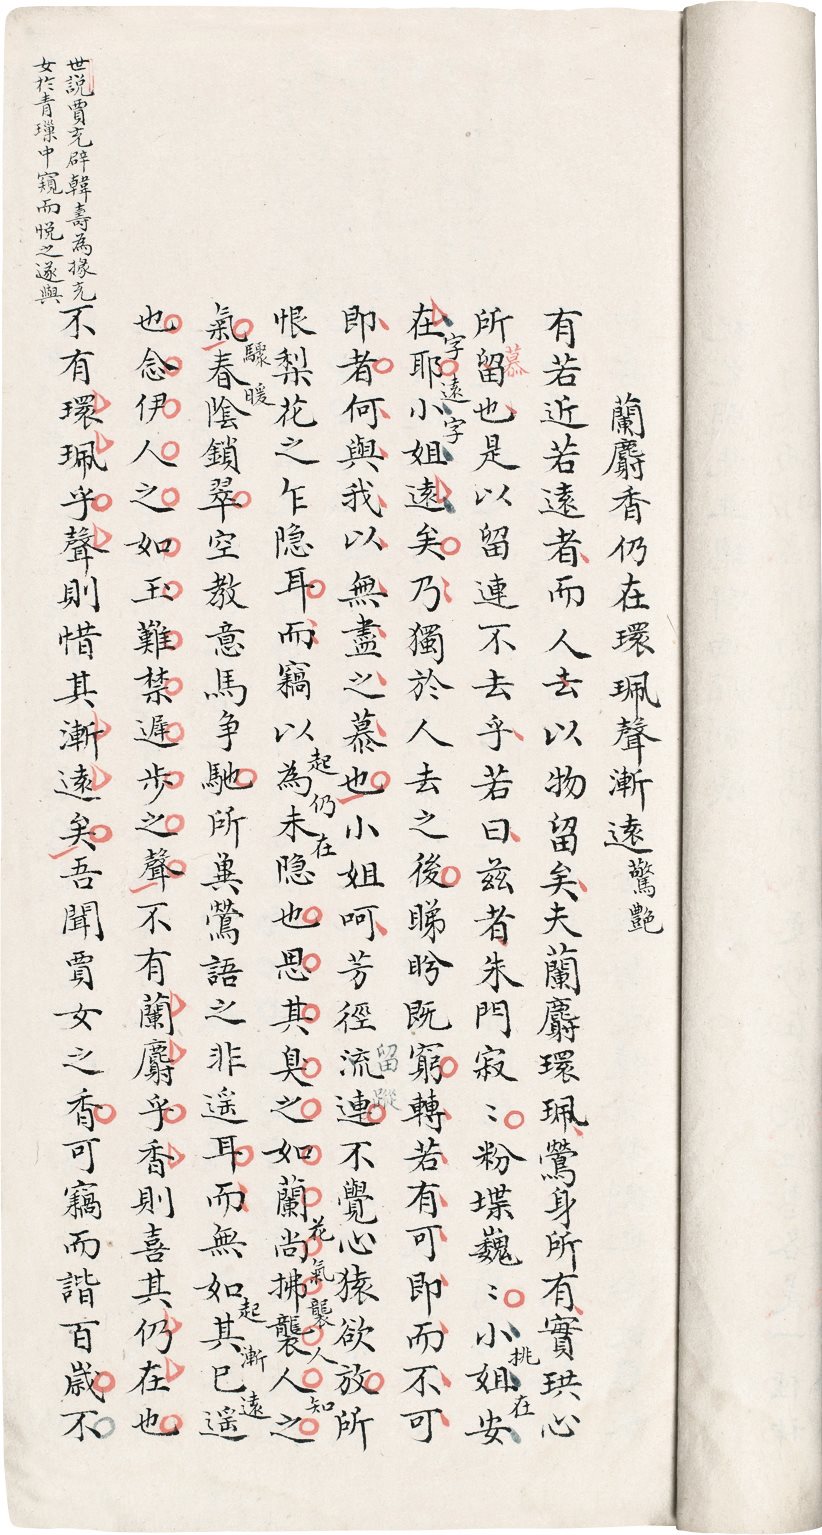 蘭麝香仍在環珮聲漸遠驚艷
有若近若遠者而人去以物留矣夫蘭麝環珮鶯身所有實珙心
所留也是以留連不去乎若曰兹者朱門寂〻粉堞巍〻小姐安
慕
挑在
在耶小姐遠矣乃獨於人去之後睇盼既窮轉若有可即而不可
字遠字
即者何與我以無盡之慕也小姐呵芳徑流連不覺心猿欲放所
留蹤
恨梨花之乍隐耳而竊以為未隐也思其臭之如蘭尚拂襲人之
起仍在
花氣襲人知
氣春陰鎖翠空教意馬争馳所兾鶯語之非遥耳而無如其已遥
驟暖
起漸遠
也念伊人之如玉難禁遲步之聲不有蘭麝乎香則喜其仍在也
不有環珮乎聲則惜其漸遠矣吾聞賈女之香可竊而諧百歲不
世説賈充辟韓壽為掾充
女於青璅中窺而悦之遂與